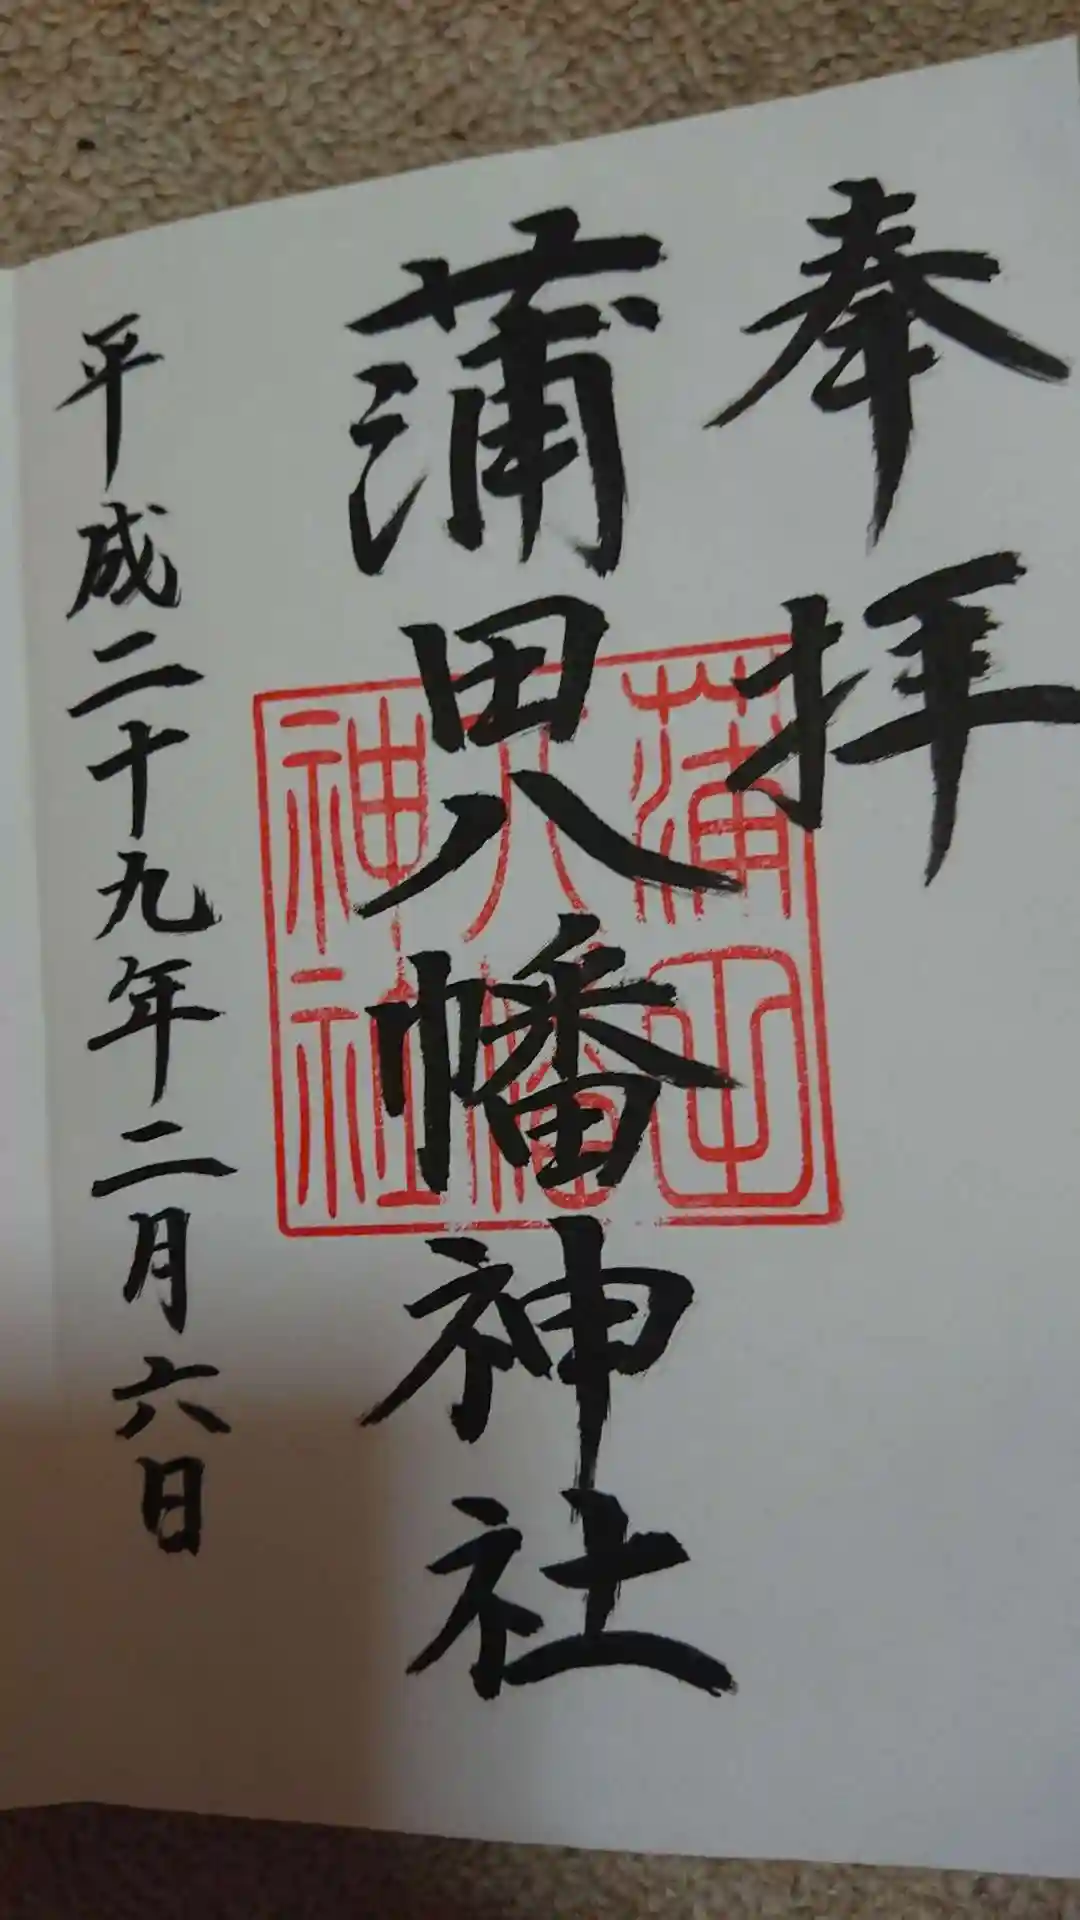 奉拝
蒲田八幡神社
蒲田
八幡
神社
平成二十九年二月六日